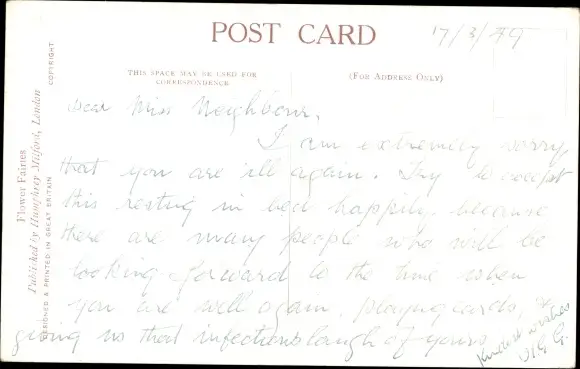 POST CARD
17/3/79
THIS SPACE MAY BE USED FOR
CORRESPONDENCE
(FOR ADDRESS ONLY)
Flower Fairies
Published by Humphrey Milford, London
DESIGNED & PRINTED IN GREAT BRITAIN
COPYRIGHT
Dear Miss Neighbour,
I am extremely sorry
that you are ill again. Try to accept
this resting in bed happily, because
there are many people who will be
looking forward to the time when
you are well again, playing cards, &
giving us that infectious laugh of yours
Kindest wishes